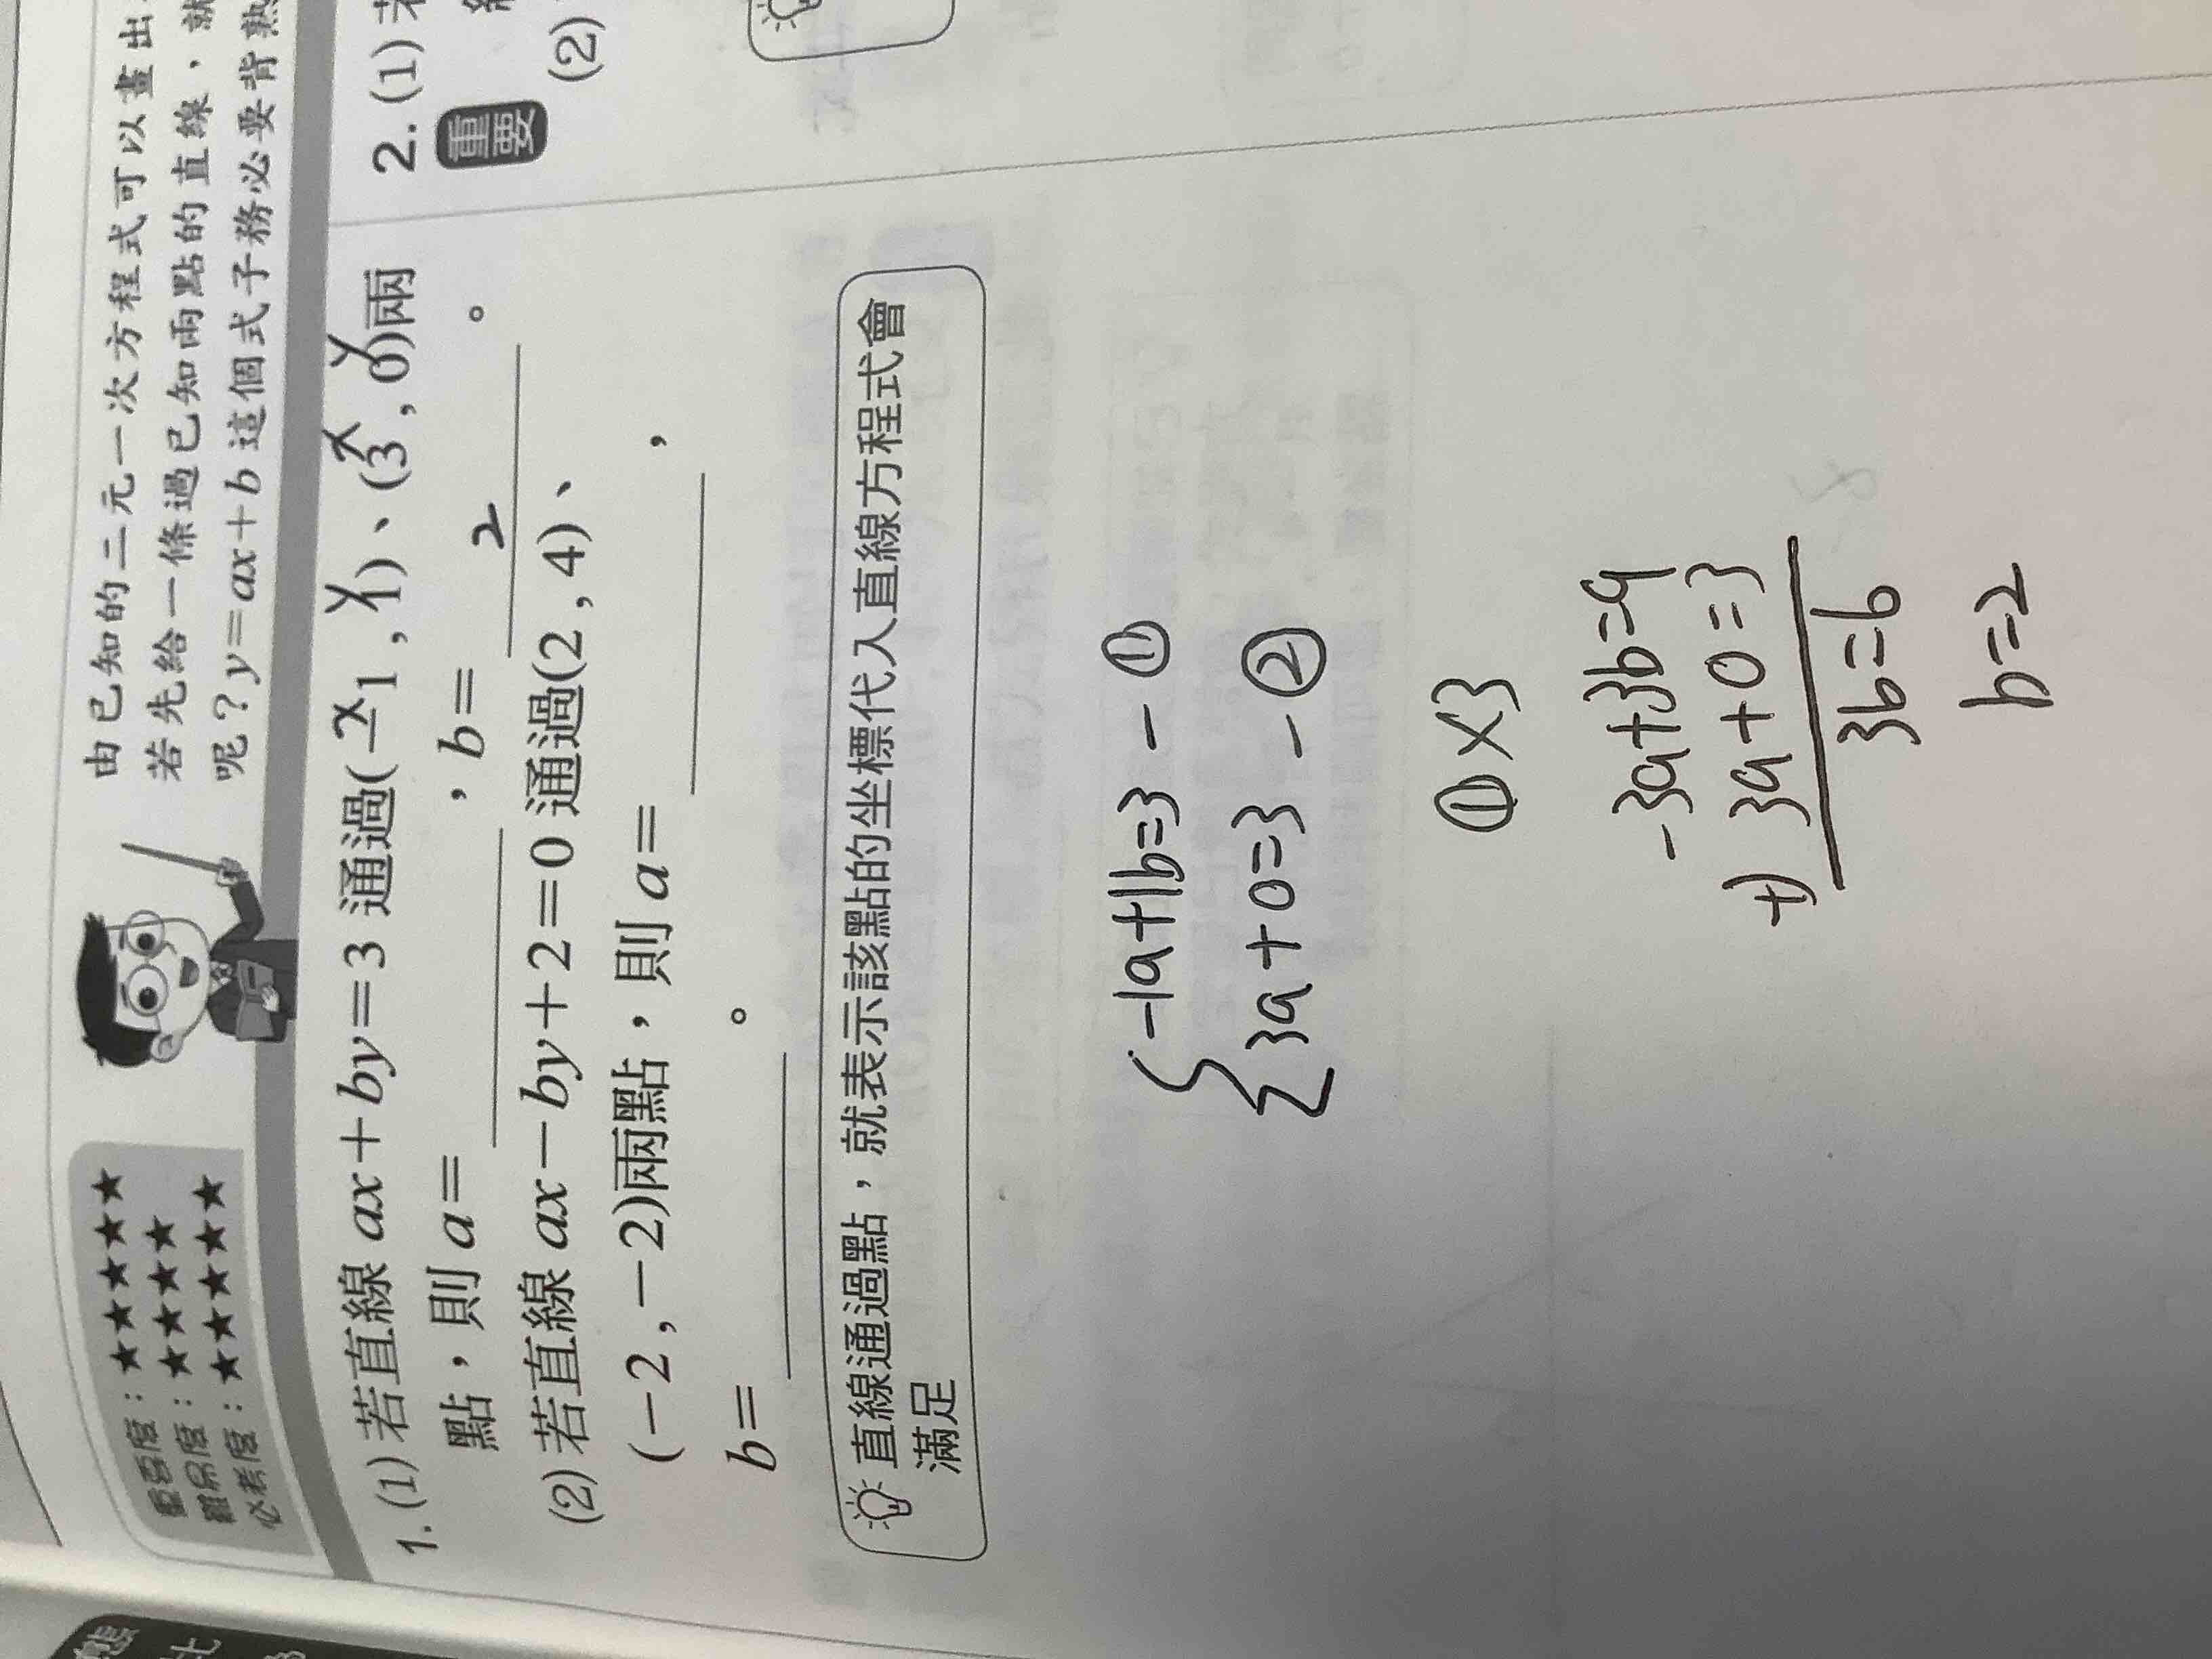 由已知的二元一次方程式可以畫出
若先給一條過已知兩點的直線，就
呢？y=ax+b 這個式子務必要背熟
重要度：★★★★★
難易度：★★★★
必考度：★★★★★
1. (1) 若直線 ax+by=3 通過(-1 , 1)、(3 , 0)兩
x y x y
點，則 a= ，b= 2 。
(2) 若直線 ax-by+2=0 通過(2 , 4)、
(-2 , -2)兩點，則 a= ，
b= 。
直線通過點，就表示該點的坐標代入直線方程式會
滿足
-1a+1b=3 - ①
3a+0=3 - ②
①×3
-3a+3b=9
+) 3a+0=3
3b=6
b=2
2. (1) 若
重要
(2)